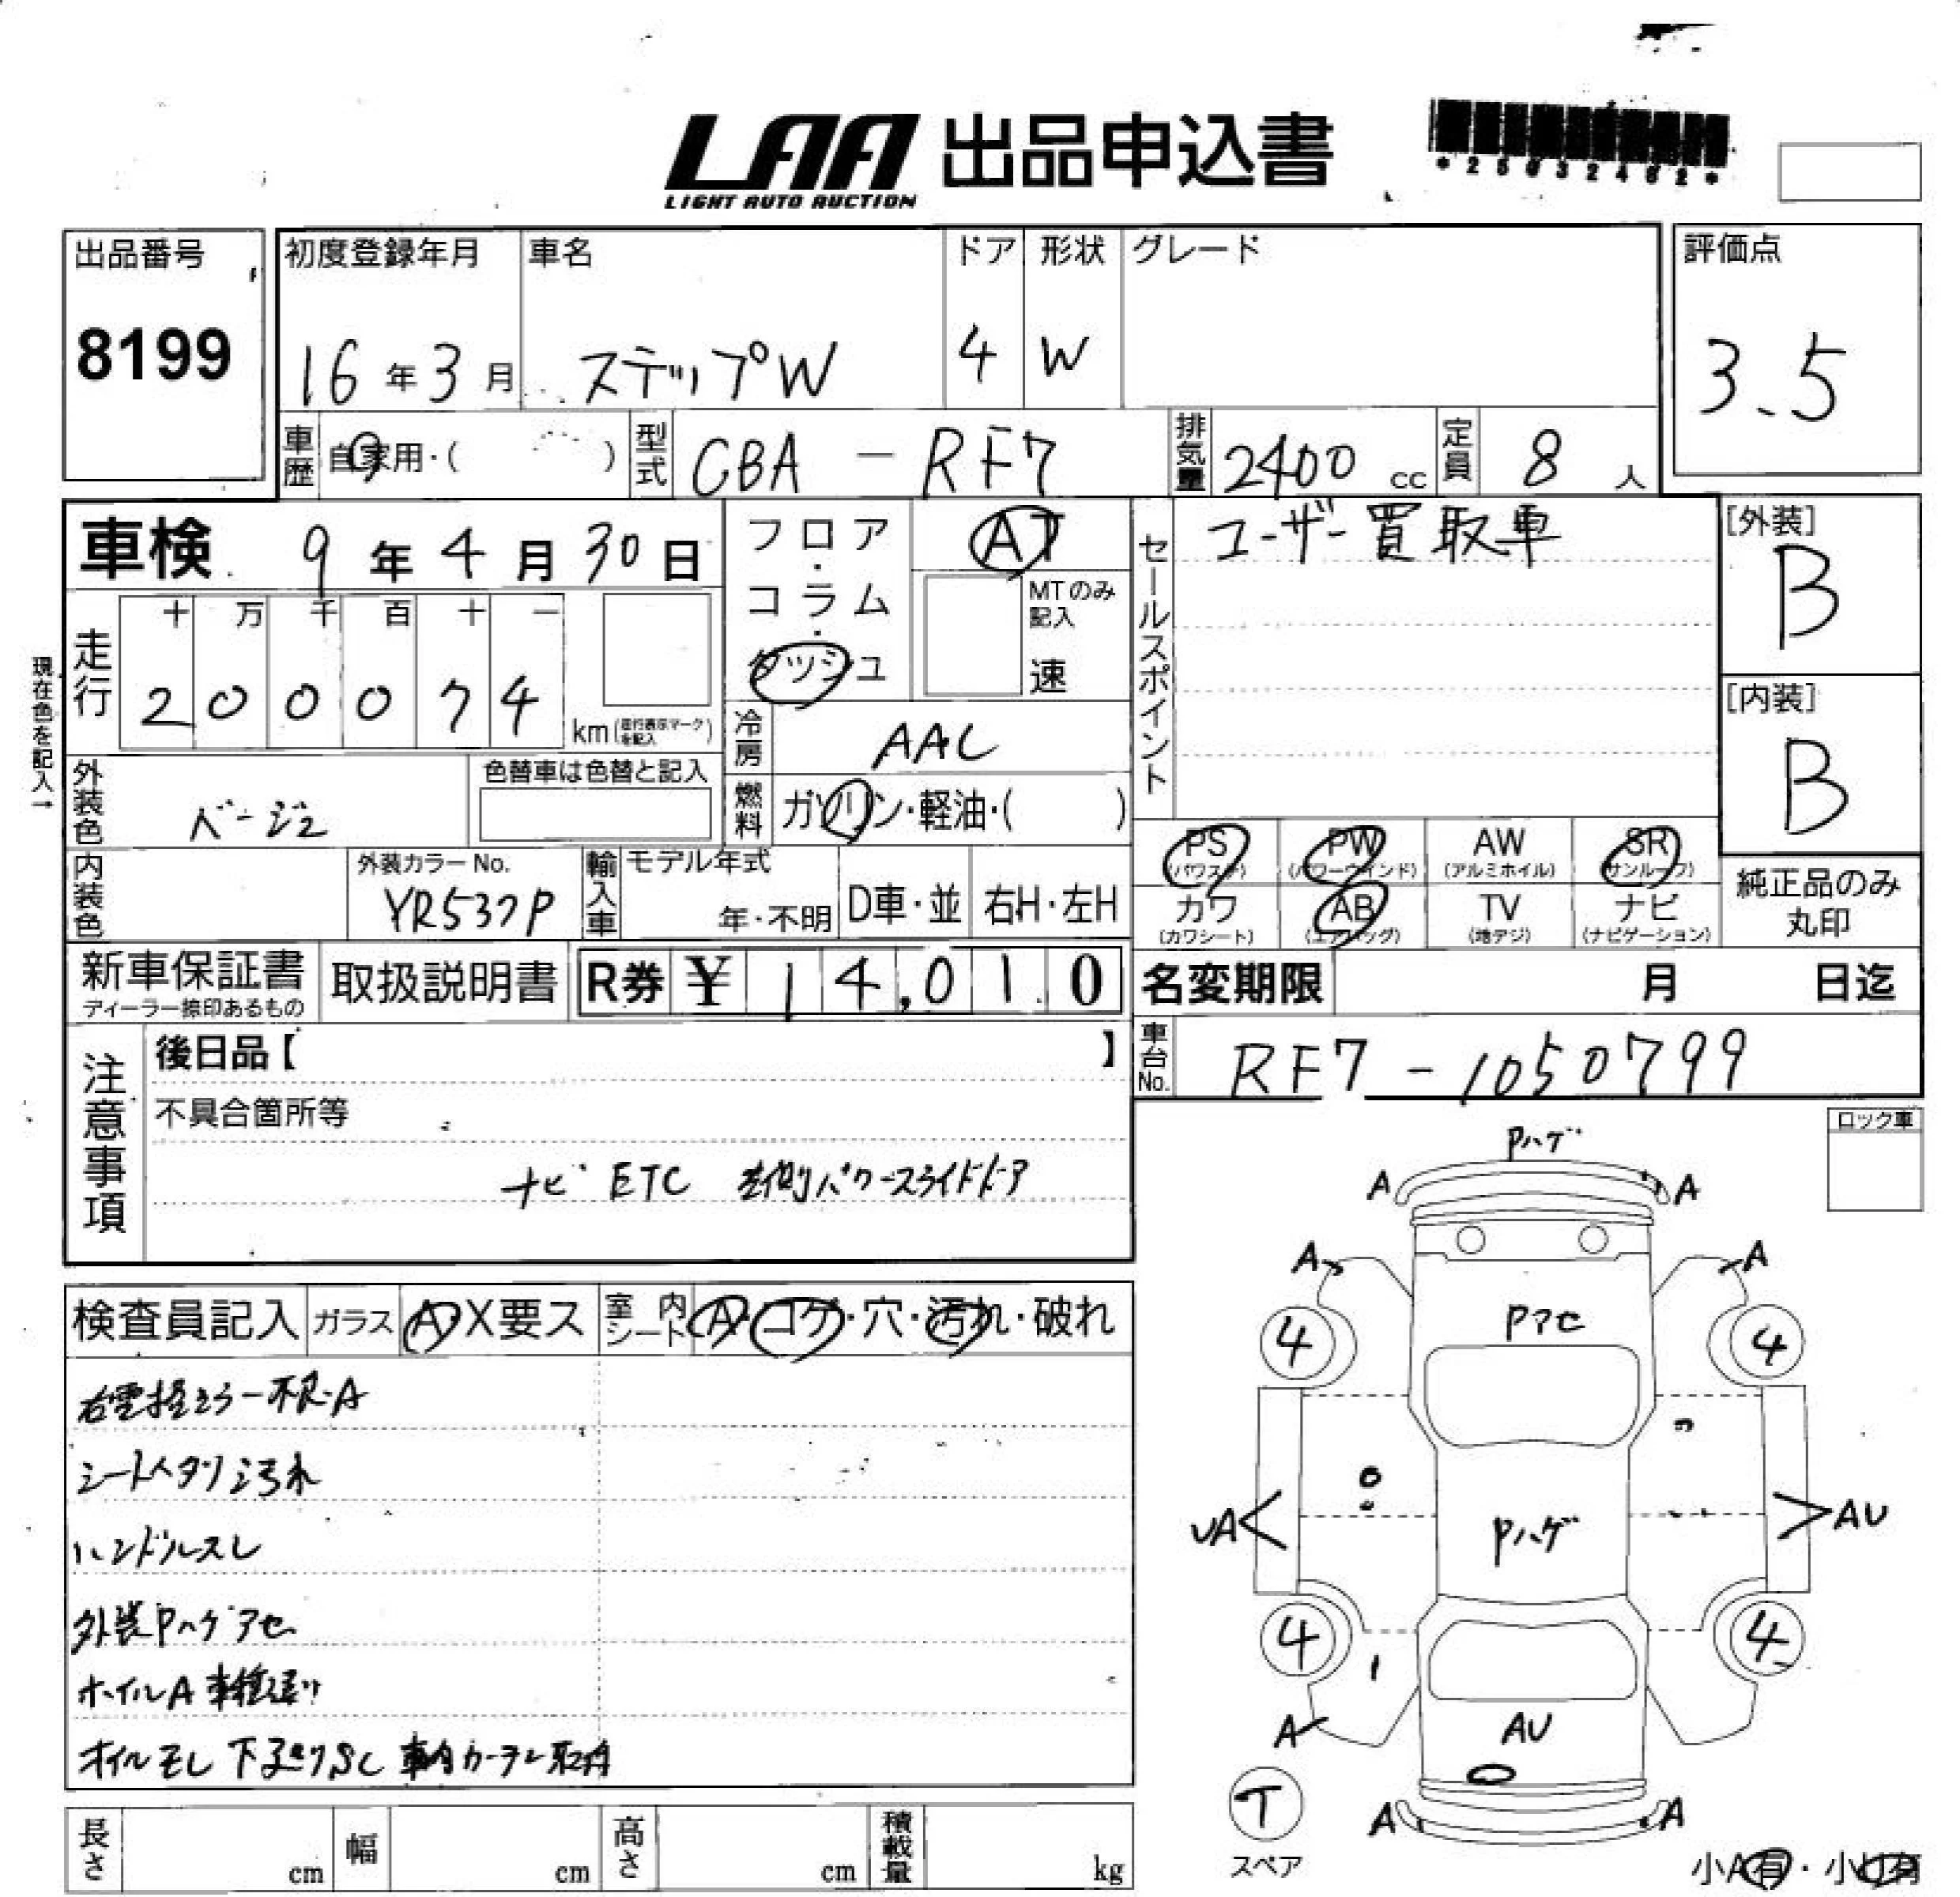 LAA 出品申込書
LIGHT AUTO AUCTION
*25032462*
出品番号
8199
初度登録年月
16年3月
車名
ステップW
ドア
4
形状
W
グレード
評価点
3.5
車歴 自家用・( )
型式 CBA-RF7
排気量 2400 cc
定員 8人
車検 9年4月30日
フロア・コラム・ダッシュ
AT
MTのみ記入
速
セールスポイント
ユーザー買取車
[外装]
B
[内装]
B
走行
十 万 千 百 十 一
2 0 0 0 7 4
km(走行表示マークを記入)
現在色を記入→
冷房 AAC
外装色 ベージュ
色替車は色替と記入
燃料 ガソリン・軽油・( )
内装色
外装カラーNo.
YR537P
輸入車
モデル年式
年・不明
D車・並
右H・左H
PS (パワステ)
PW (パワーウインド)
AW (アルミホイル)
SR (サンルーフ)
カワ (カワシート)
AB (エアバッグ)
TV (地デジ)
ナビ (ナビゲーション)
純正品のみ
丸印
新車保証書
ディーラー捺印あるもの
取扱説明書
R券 ¥ 14,010
名変期限 月 日迄
車台No. RF7-1050799
注意事項
後日品【 】
不具合箇所等
ナビ ETC 左側パワースライドドア
ロック車
検査員記入
ガラス A・X要ス
室内シート A・コゲ・穴・汚れ・破れ
右電格ミラー不良・A
シートヘタリ汚れ
ハンドルスレ
外装Pハゲアセ
ホイルA 車種違い
オイルモレ 下廻りSC 車内カーテン取付
Pハゲ
A A
A A
4 Pアセ 4
UA Pハゲ AU
4 4
A AU
T
スペア
A A
小A有・小U有
長さ cm
幅 cm
高さ cm
積載量 kg